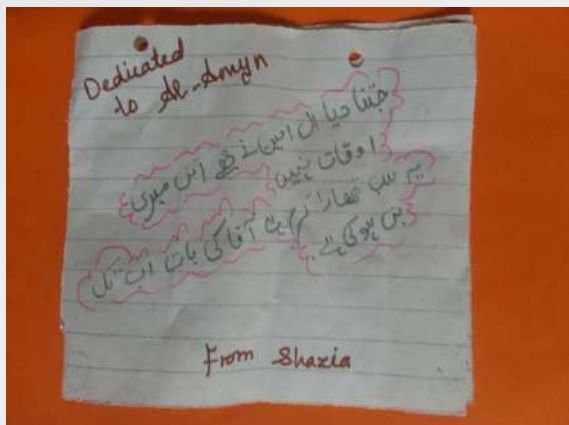 Dedicated
to Al-Amyn
جتنا دیا ال امین نے مجھے اتنی میری
اوقات نہیں
یہ سب تمھارا کرم ہے آقا کی بات اب تک
بنی ہوئی ہے
From Shazia